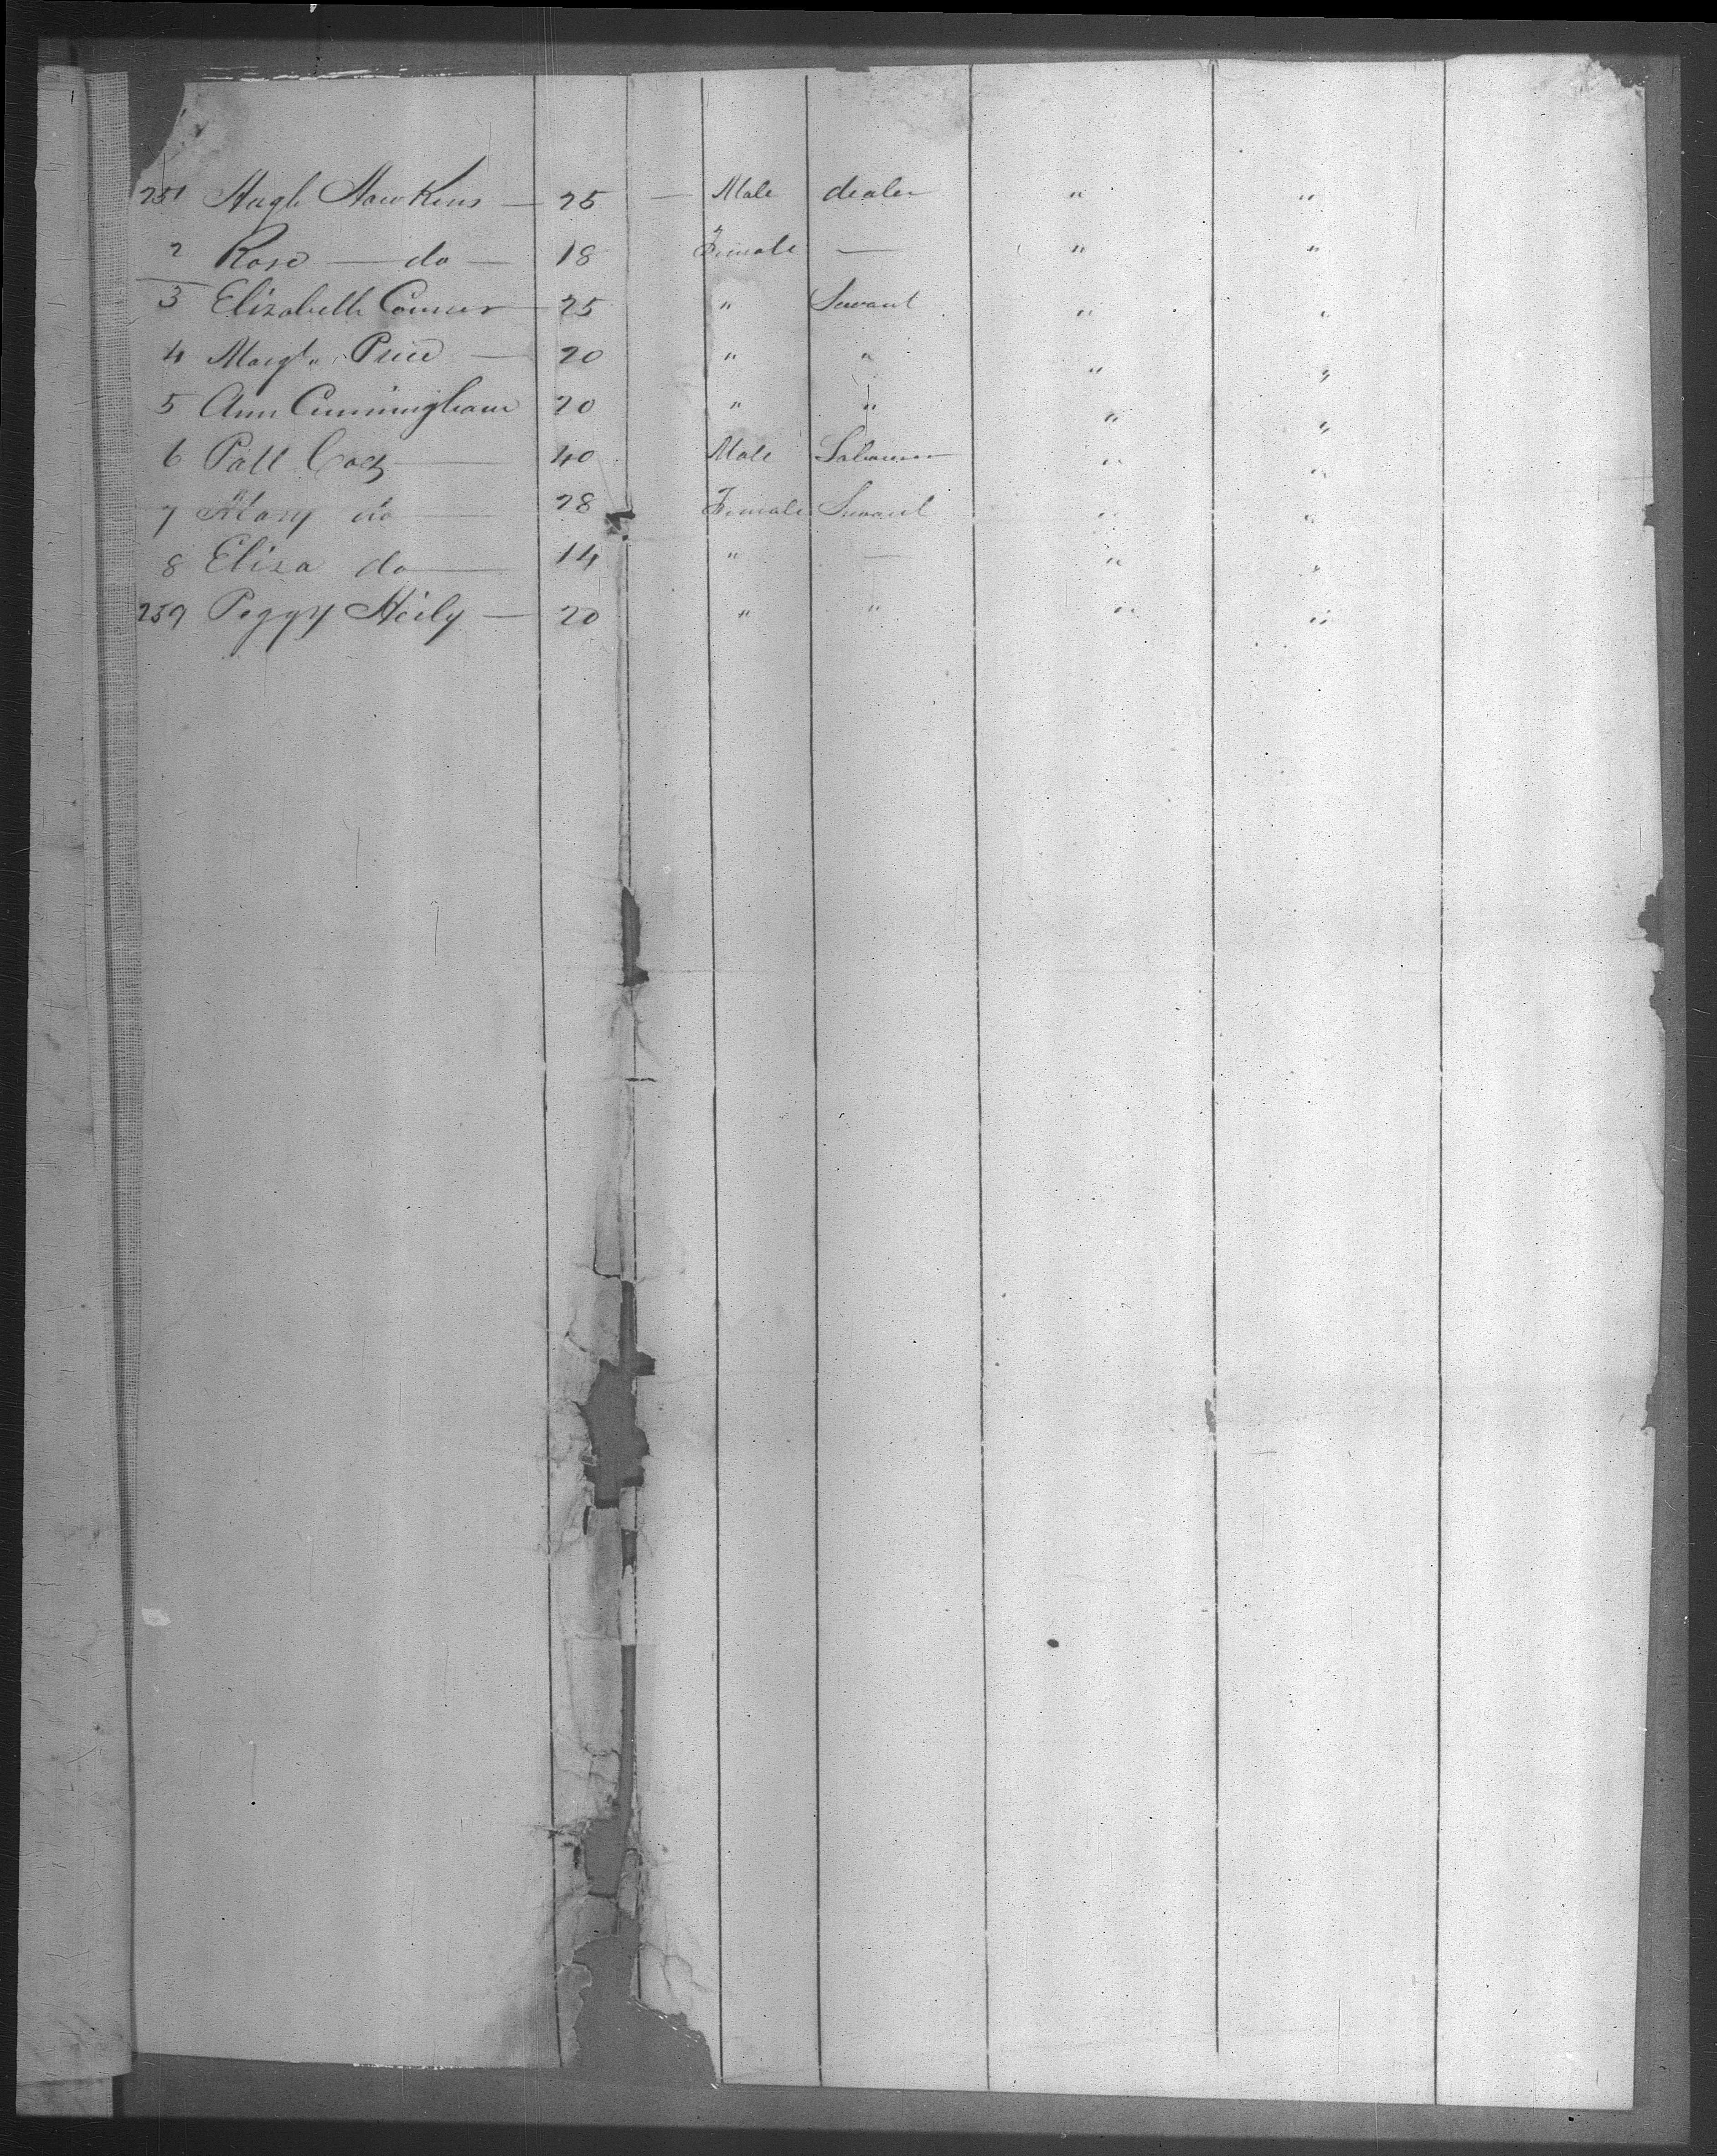 251 Hugh Hawkins — 25 — Male dealer " "
2 Rose — do — 18 Female — " "
3 Elizabeth Conner 25 " Servant " "
4 Margt. Price — 20 " " " "
5 Ann Cunningham 20 " " " "
6 Patt — 40 Male Labourer " "
7 Mary do — 28 Female Servant " "
8 Eliza do — 14 " — " "
259 Peggy — 20 " " " "